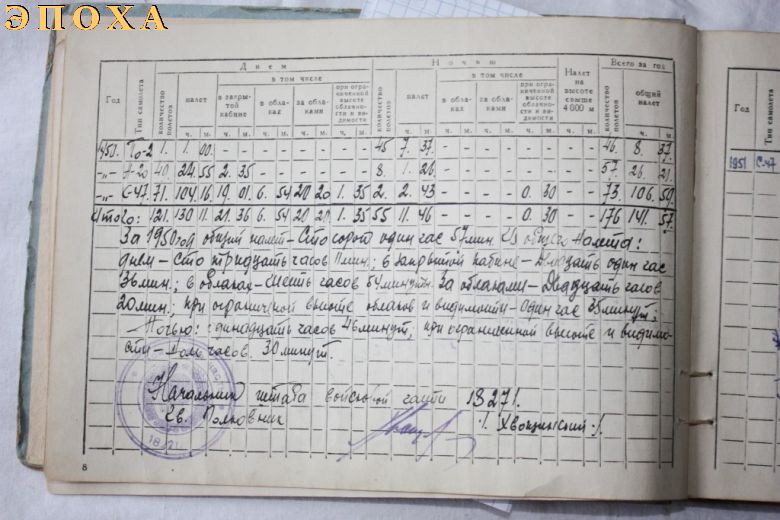 ЭПОХА
Год Тип самолета Днем Ночью Налет на высоте свыше 4 000 м Всего за год
количество полетов налет в том числе количество полетов налет в том числе количество полетов общий налет
в закрытой кабине в облаках за облаками при ограниченной высоте облачности и видимости в облак. за облак. при ограниченной высоте облачности и видимости
ч. м. ч. м. ч. м. ч. м. ч. м. ч. м. ч. м. ч. м. ч. м. ч. м. ч. м.
1950. По-2 1. 1. 00. - - - - - - - - 45 7. 37. - - - - - - - - 46. 8. 37.
-"- А-20 49. 24. 55 2. 35 - - - - - - 8. 1. 26. - - - - - - - - 57. 26. 21.
-"- С-47. 71. 104. 16. 19. 01 6. 54 20 20 1. 35 2. 2. 43 - - - - 0. 30 - - 73. 106. 59.
Итого: 121. 130 11. 21. 36 6. 54 20 20 1. 35 55 11. 46 - - - - 0. 30 - - 176 141. 57.
За 1950 год общий налет - Сто сорок один час 57 мин. Из общего налета:
днем - сто тридцать часов 11 мин.; в закрытой кабине - Двадцать один час
36 мин.; в облаках - шесть часов 54 минут. За облаками - Двадцать часов
20 мин.; при ограниченой высоте облаков и видимости - один час 35 минут;
- Ночью: одинадцать часов 46 минут; при ограниченной высоте и видимо-
сти - Ноль часов. 30 минут.
Начальник штаба войсковой части 18271.
Гв. Полковник /. Хвощинский ./.
8
Год Тип самолета
1951 С-47